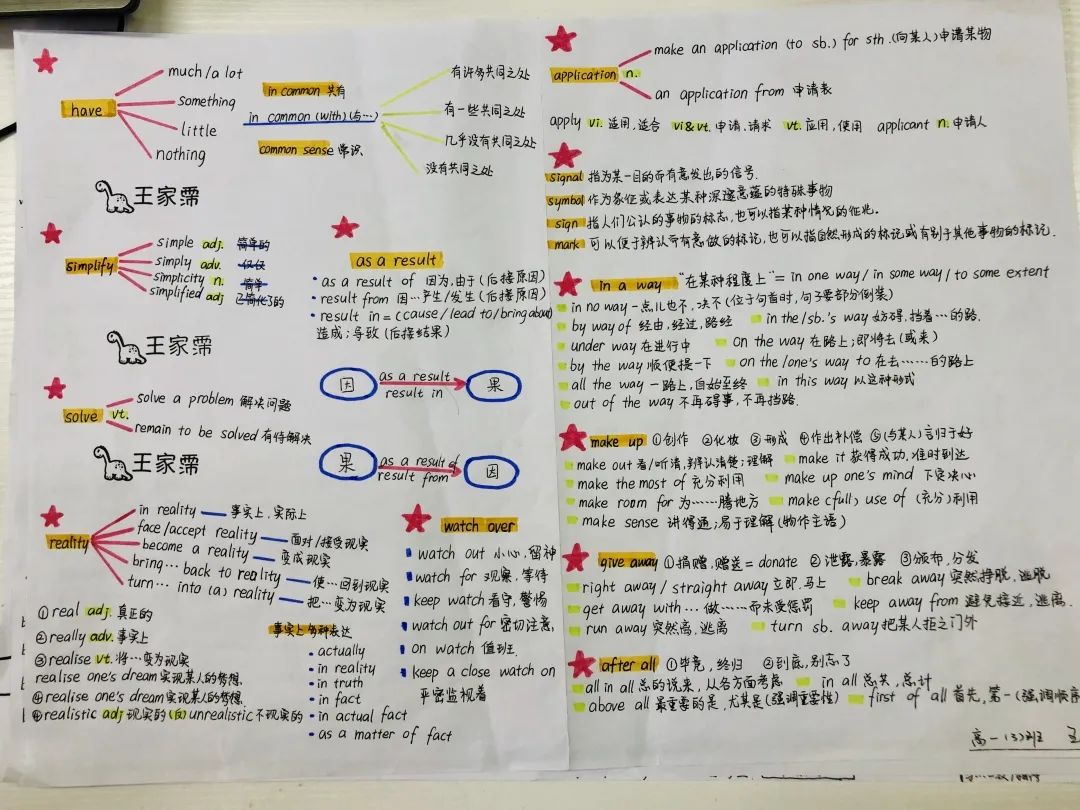 have
much/a lot
something
little
nothing
in common 共有
in common (with) (与…)
common sense 常识
有许多共同之处
有一些共同之处
几乎没有共同之处
没有共同之处
王家霈
simplify
simple adj. 简单的
simply adv. 仅仅
simplicity n. 简单
simplified adj 已简化了的
王家霈
solve vt.
solve a problem 解决问题
remain to be solved 有待解决
王家霈
as a result
as a result of 因为,由于(后接原因)
result from 因…产生/发生(后接原因)
result in = (cause/lead to/bring about)
造成;导致(后接结果)
因
as a result
result in
果
果
as a result of
result from
因
reality
in reality — 事实上,实际上
face/accept reality — 面对/接受现实
become a reality — 变成现实
bring… back to reality — 使…回到现实
turn… into (a) reality — 把…变为现实
①real adj. 真正的
②really adv. 事实上
③realise vt. 将…变为现实
realise one's dream 实现某人的梦想
④realise one's dream 实现某人的梦想.
④realistic adj 现实的 unrealistic 不现实的
事实上多种表达
actually
in reality
in truth
in fact
in actual fact
as a matter of fact
watch over
watch out 小心,留神
watch for 观察,等待
keep watch 看守,警惕
watch out for 密切注意,
on watch 值班.
keep a close watch on
严密监视着
application n.
make an application (to sb.) for sth. (向某人)申请某物
an application from 申请表
apply vi. 适用,适合 vi&vt. 申请,请求 vt. 应用,使用 applicant n. 申请人
signal 指为某一目的而有意发出的信号.
symbol 作为象征或表达某种深邃意蕴的特殊事物
sign 指人们公认的事物的标志,也可以指某种情况的征兆.
mark 可以便于辨认而有意做的标记,也可以指自然形成的标记或有别于其他事物的标记.
in a way "在某种程度上" = in one way/ in some way/ to some extent
in no way 一点儿也不,决不(位于句首时,句子要部分倒装)
by way of 经由,经过,路经 in the/sb.'s way 妨碍,挡着…的路.
under way 在进行中 on the way 在路上;即将去(或来)
by the way 顺便提一下 on the/one's way to 在去……的路上
all the way 一路上,自始至终 in this way 以这种形式
out of the way 不再碍事,不再挡路.
make up ①创作 ②化妆 ③形成 ④作出补偿 ⑤(与某人)言归于好
make out 看/听清,辨认清楚;理解 make it 获得成功,准时到达
make the most of 充分利用 make up one's mind 下定决心
make room for 为……腾地方 make (full) use of (充分)利用
make sense 讲得通;易于理解(物作主语)
give away ①捐赠,赠送= donate ②泄露,暴露 ③颁布,分发
right away/ straight away 立即,马上 break away 突然挣脱,逃脱
get away with… 做……而未受惩罚 keep away from 避免接近,逃离.
run away 突然离,逃离 turn sb. away 把某人拒之门外
after all ①毕竟,终归 ②到底,别忘了
all in all 总的说来,从各方面考虑 in all 总共,总计
above all 最重要的是,尤其是(强调重要性) first of all 首先,第一(强调顺序
高一(3)班 王